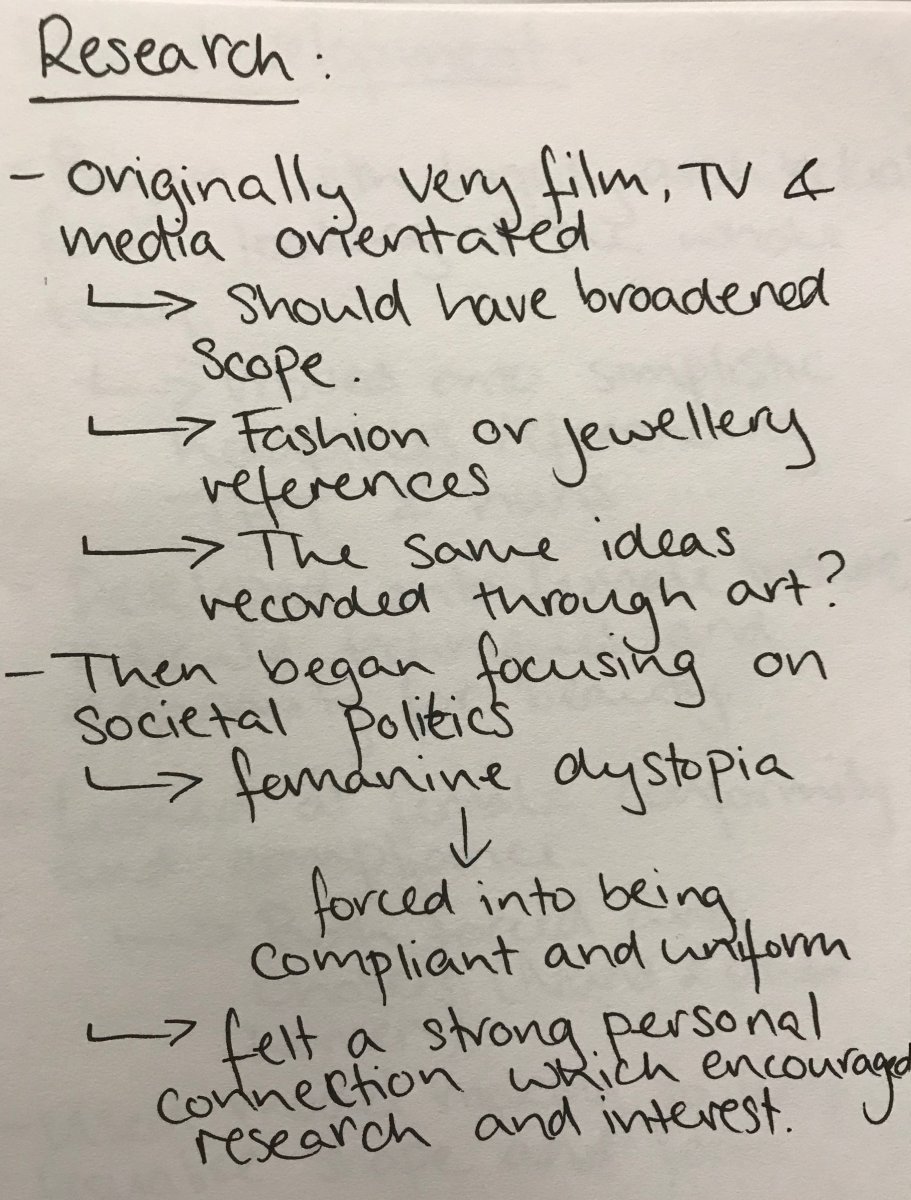 Research :
- Originally very film, TV &
media orientated
↳ Should have broadened
scope.
↳ Fashion or jewellery
references
↳ The same ideas
recorded through art?
- Then began focusing on
societal politics
↳ femanine dystopia
↓
forced into being
compliant and uniform
↳ felt a strong personal
connection which encouraged
research and interest.